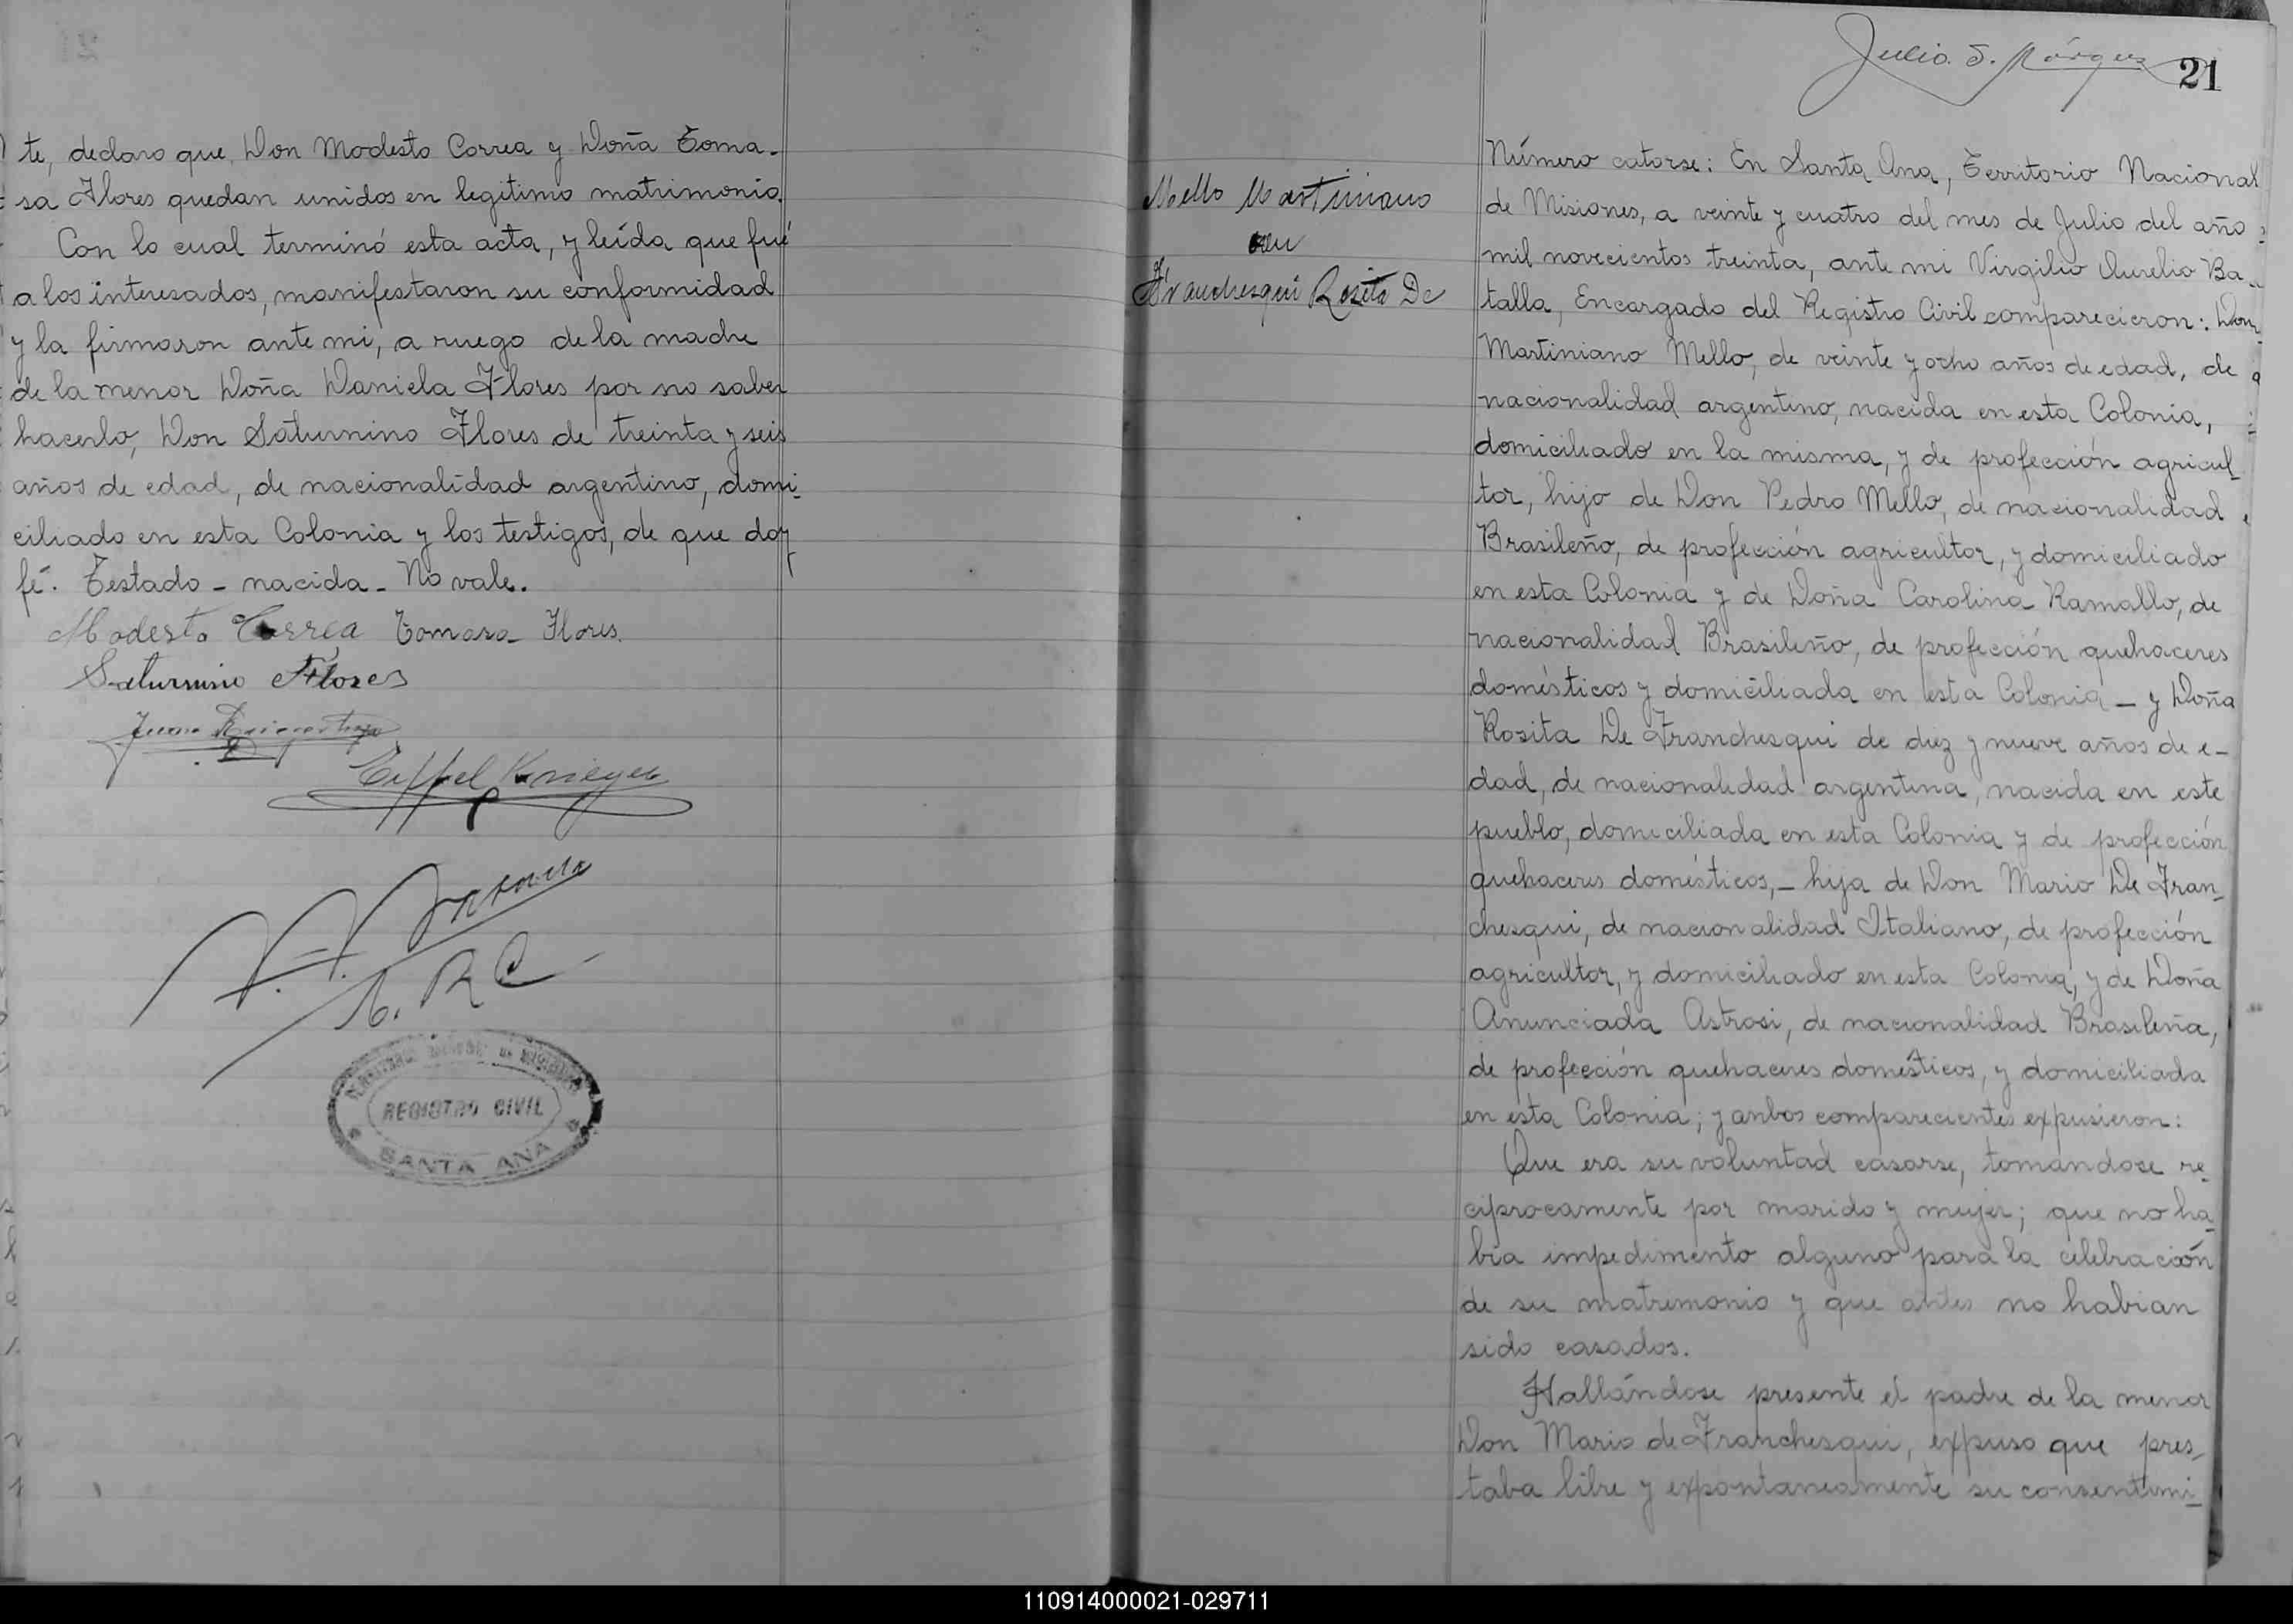 te, declaro que Don Modesto Correa y Doña Toma-
sa Flores quedan unidos en legitimo matrimonio.
Con lo cual terminó esta acta, y leída que fué
a los interesados, manifestaron su conformidad
y la firmaron ante mi, a ruego de la madre
de la menor Doña Daniela Flores por no saber
hacerlo, Don Saturnino Flores de treinta y seis
años de edad, de nacionalidad argentino, domi-
ciliado en esta Colonia y los testigos, de que doy
fé. Testado - nacida - No vale.
Modesto Correa Tomasa Flores.
Saturnino Flores
Juan
Eiffel Krieger
REGISTRO CIVIL
SANTA ANA
Julio S.
21
Mello Martiniano
con
Franchesqui Rosita De
Número catorse: En Santa Ana, Territorio Nacional
de Misiones, a veinte y cuatro del mes de Julio del año
mil novecientos treinta, ante mi Virgilio Aurelio Ba-
talla, Encargado del Registro Civil comparecieron: Don
Martiniano Mello, de veinte y ocho años de edad, de
nacionalidad argentino, nacida en esta Colonia,
domiciliado en la misma, y de profección agricul-
tor, hijo de Don Pedro Mello, de nacionalidad
Brasileño, de profección agricultor, y domiciliado
en esta Colonia y de Doña Carolina Ramallo, de
nacionalidad Brasileño, de profección quehaceres
domésticos y domiciliada en esta Colonia - y Doña
Rosita De Franchesqui de diez y nueve años de e-
dad, de nacionalidad argentina, nacida en este
pueblo, domiciliada en esta Colonia y de profección
quehaceres domésticos, - hija de Don Mario De Fran-
chesqui, de nacionalidad Italiano, de profección
agricultor, y domiciliado en esta Colonia, y de Doña
Anunciada Astrosi, de nacionalidad Brasileña,
de profección quehaceres domésticos, y domiciliada
en esta Colonia; y anbos comparecientes expusieron:
Que era su voluntad casarse, tomandose re-
ciprocamente por marido y mujer; que no ha-
bia impedimento alguno para la celebración
de su matrimonio y que antes no habian
sido casados.
Hallándose presente el padre de la menor
Don Mario de Franchesqui, expuso que pres-
taba libre y expontaneamente su consentimi-
110914000021-029711